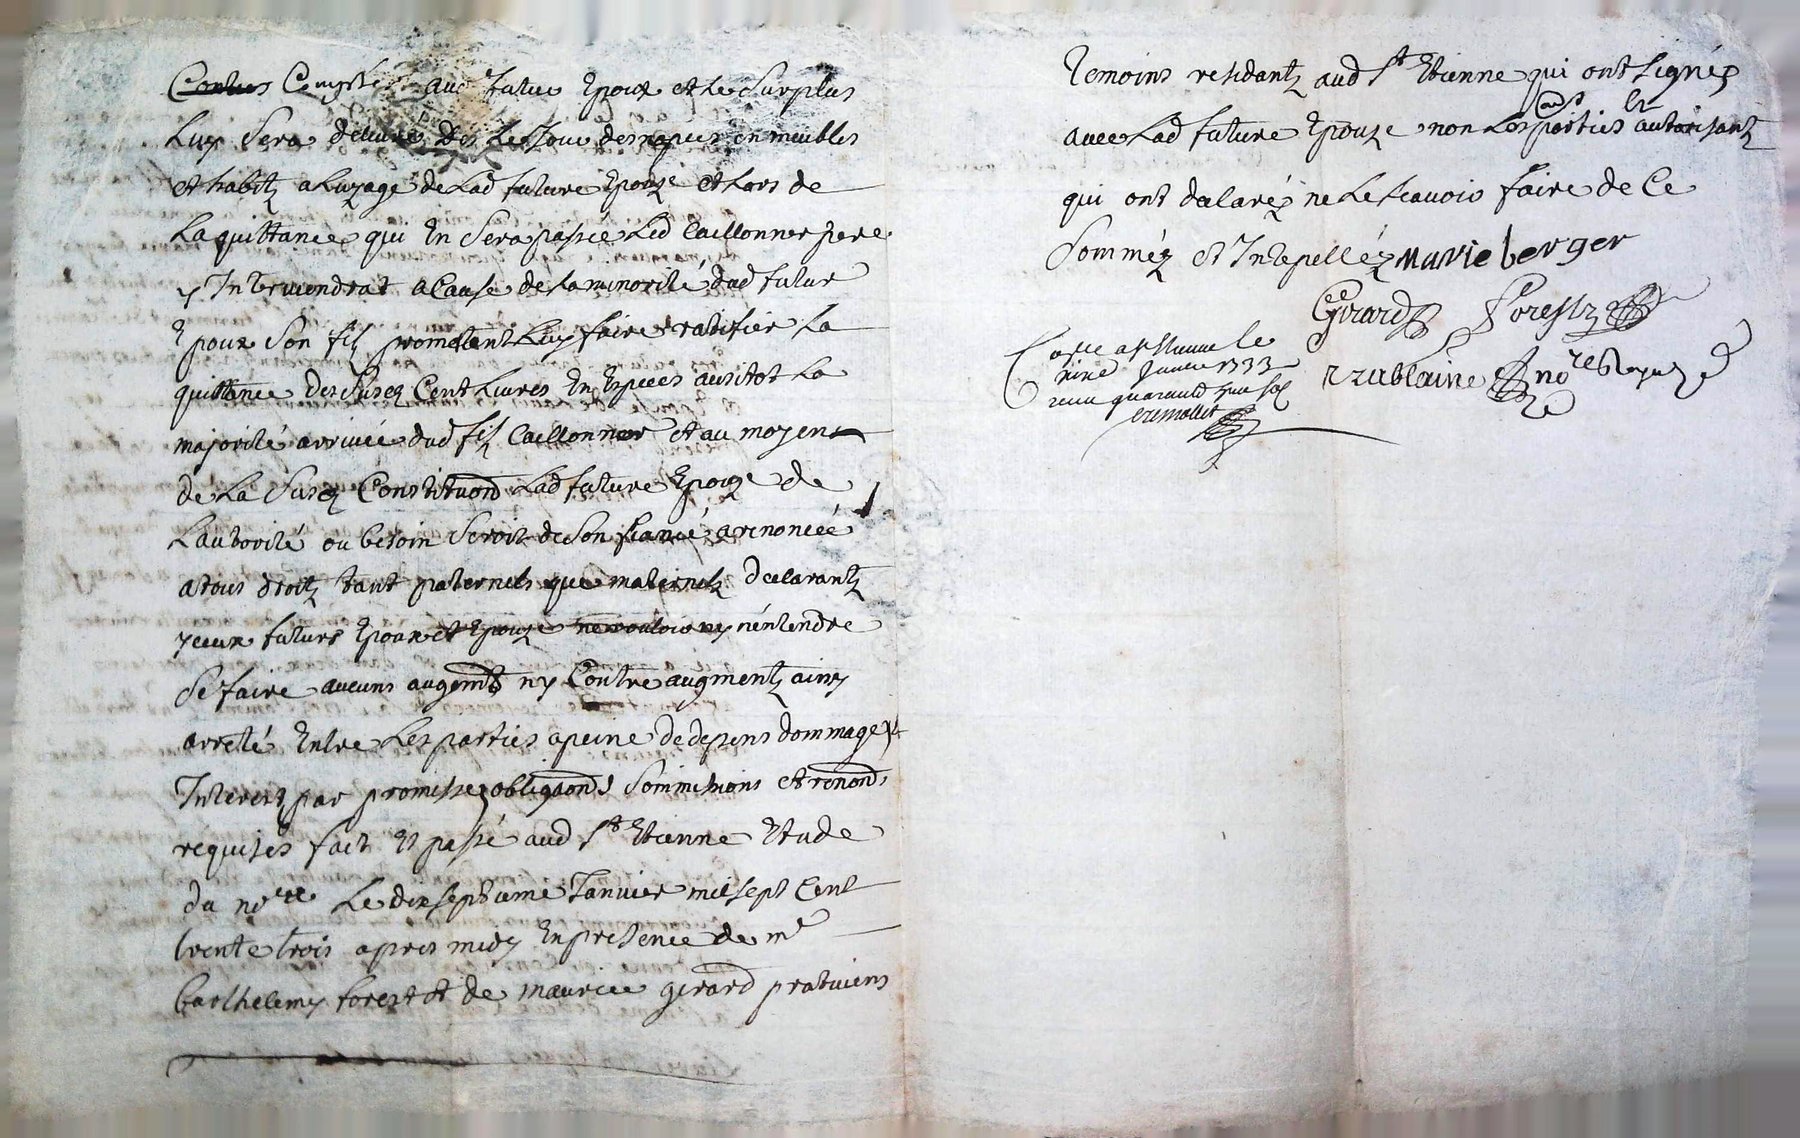 Comptés aud futur Epoux et le Surplus
Luy Sera delivré des le Jour des nopces en meubles
et habitz a Luzage de Lad future Epouze et Lors de
La quittance qui En Sera passée Led Caillonner pere
y Interviendrat a Cause de la minorité dud futur
Epoux Son filz prometent Luy faire ratifier La
quittance des Susd Cent Livres En Especes ausitot La
majorité arrivée dud filz Caillonner et au moyen
de La Susd Constituon Lad future Epouze de
Lauthorité ou besoin Seroit de Son fiancé a renoncée
a tous droitz tant paternels que maternelz declarantz
yceux futurs Epoux et Epouze ne vouloir ny n'entendre
Se faire aucuns augentz ny Contre augmentz ainsy
arreté Entre Les parties a peine de depens dommage et
Interestz par promisses obligaons Sommissions et renons
requises fait Et passé aud St Etienne Etude
du nore Le dixseptieme Janvier mil sept Cent
trente trois apres midy En presence de me
barthelemy forest et de maurice gerard praticiens
Temoins residantz aud St Etienne qui ont signés
avec Lad future Epouze non Les parties et autorisantz
qui ont declaréz ne Le Scavoir faire de Ce
Somméz et Intepelléz Marie berger
Girard Forestz
Conlle a St Etienne le
Janvier 1733
receu quarante sols
rublaine nore Royal